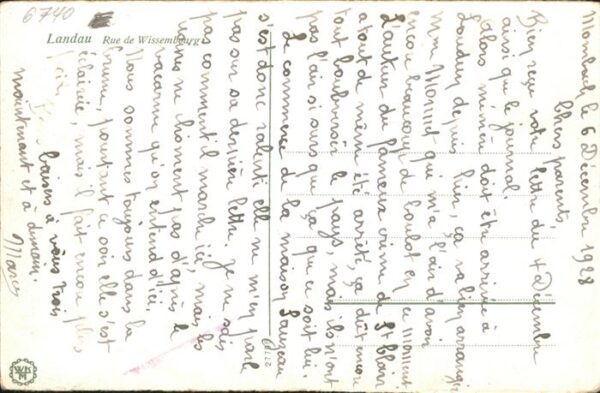 6740
Landau Rue de Wissembourg
Mombach le 6 Décembre 1928
Chers parents,
Bien reçu votre lettre du 4 Décembre
ainsi que le journal.
Alors mémé doit être arrivée à
Loudun depuis hier, ça va bien arranger
Mme qui m'a l'air d'avoir
encore beaucoup de boulot en ce moment
L'auteur du fameux crime de St
a tout de même été arrêté, ça doit encore
tout bouleverser le pays, mais ils n'ont
pas l'air si surs que ça que ce soit lui.
Le commerce de la maison
s'est donc ralenti elle ne m'en parle
pas sur sa dernière lettre. Je ne sais
pas comment il marche ici, mais les
usines ne chôment pas d'après le
vacarme qu'on entend d'ici.
Nous sommes toujours dans la
brume, pourtant ce soir elle s'est
éclaircie, mais il fait encore plus
froid.
baisers à vous trois
maintenant et à demain.
Marcel